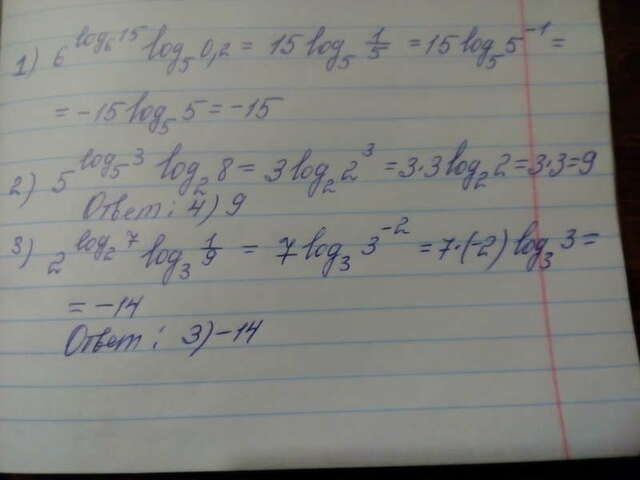 1) 6^{log_6 15} log_5 0,2 = 15 log_5 \frac{1}{5} = 15 log_5 5^{-1} =
= -15 log_5 5 = -15
2) 5^{log_5 3} log_2 8 = 3 log_2 2^3 = 3·3 log_2 2 = 3·3 = 9
Ответ: 4) 9
3) 2^{log_2 7} log_3 \frac{1}{9} = 7 log_3 3^{-2} = 7·(-2) log_3 3 =
= -14
Ответ: 3) -14